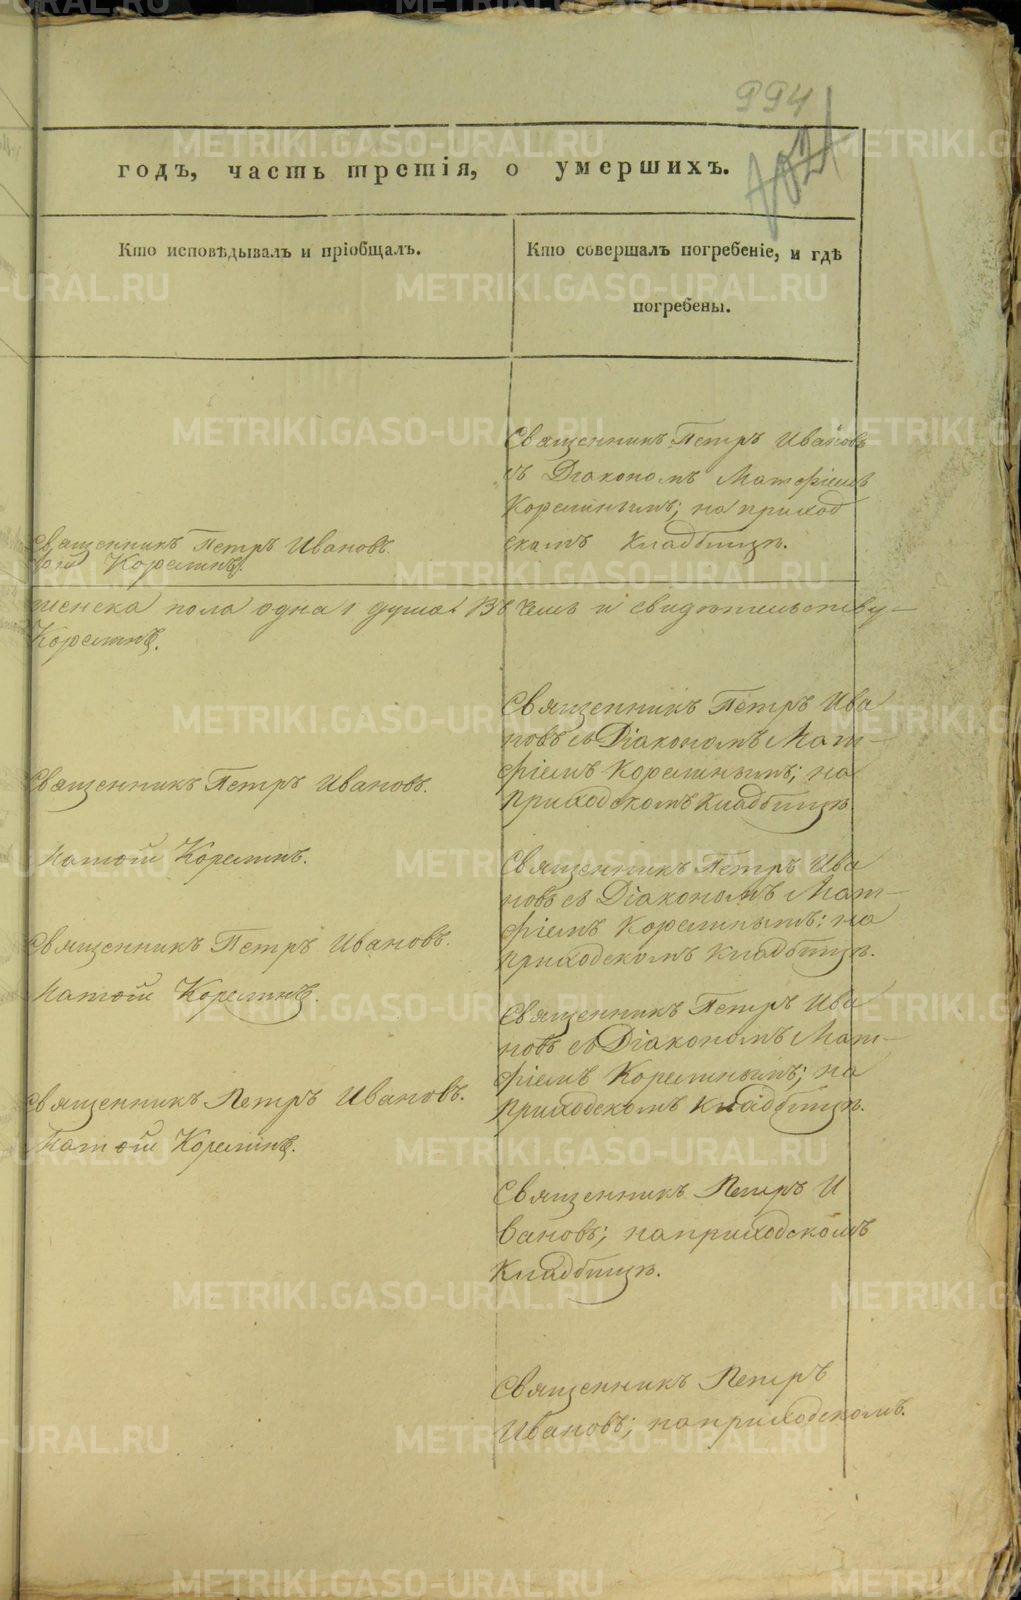 994
годъ, часть третія, о умершихъ.
Кто исповѣдывалъ и пріобщалъ.
Кто совершалъ погребеніе, и гдѣ
погребены.
Священникъ Петръ Ивановъ
съ Діакономъ Матфіемъ
Корелинымъ; на приход
скомъ кладбищѣ.
Священникъ Петръ Ивановъ.
Корелинъ.
женска пола одна 1 душа. Въ чемъ и свидѣтельству-
Корелинъ.
Священникъ Петръ Ива
новъ съ Діакономъ Мат-
фіемъ Корелинымъ; на
приходскомъ кладбищѣ
Священникъ Петръ Ивановъ.
Корелинъ.
Священникъ Петръ Ива
новъ съ Діакономъ Мат-
фіемъ Корелинымъ: на
приходскомъ кладбищѣ.
Священникъ Петръ Ивановъ.
Корелинъ.
Священникъ Петръ Ива
новъ съ Діакономъ Мат-
фіемъ Корелинымъ; на
приходскомъ кладбищѣ.
Священникъ Петръ Ивановъ.
Корелинъ.
Священникъ Петръ И
вановъ; на приходскомъ
кладбищѣ.
Священникъ Петръ
Ивановъ; на приходскомъ.
METRIKI.GASO-URAL.RU